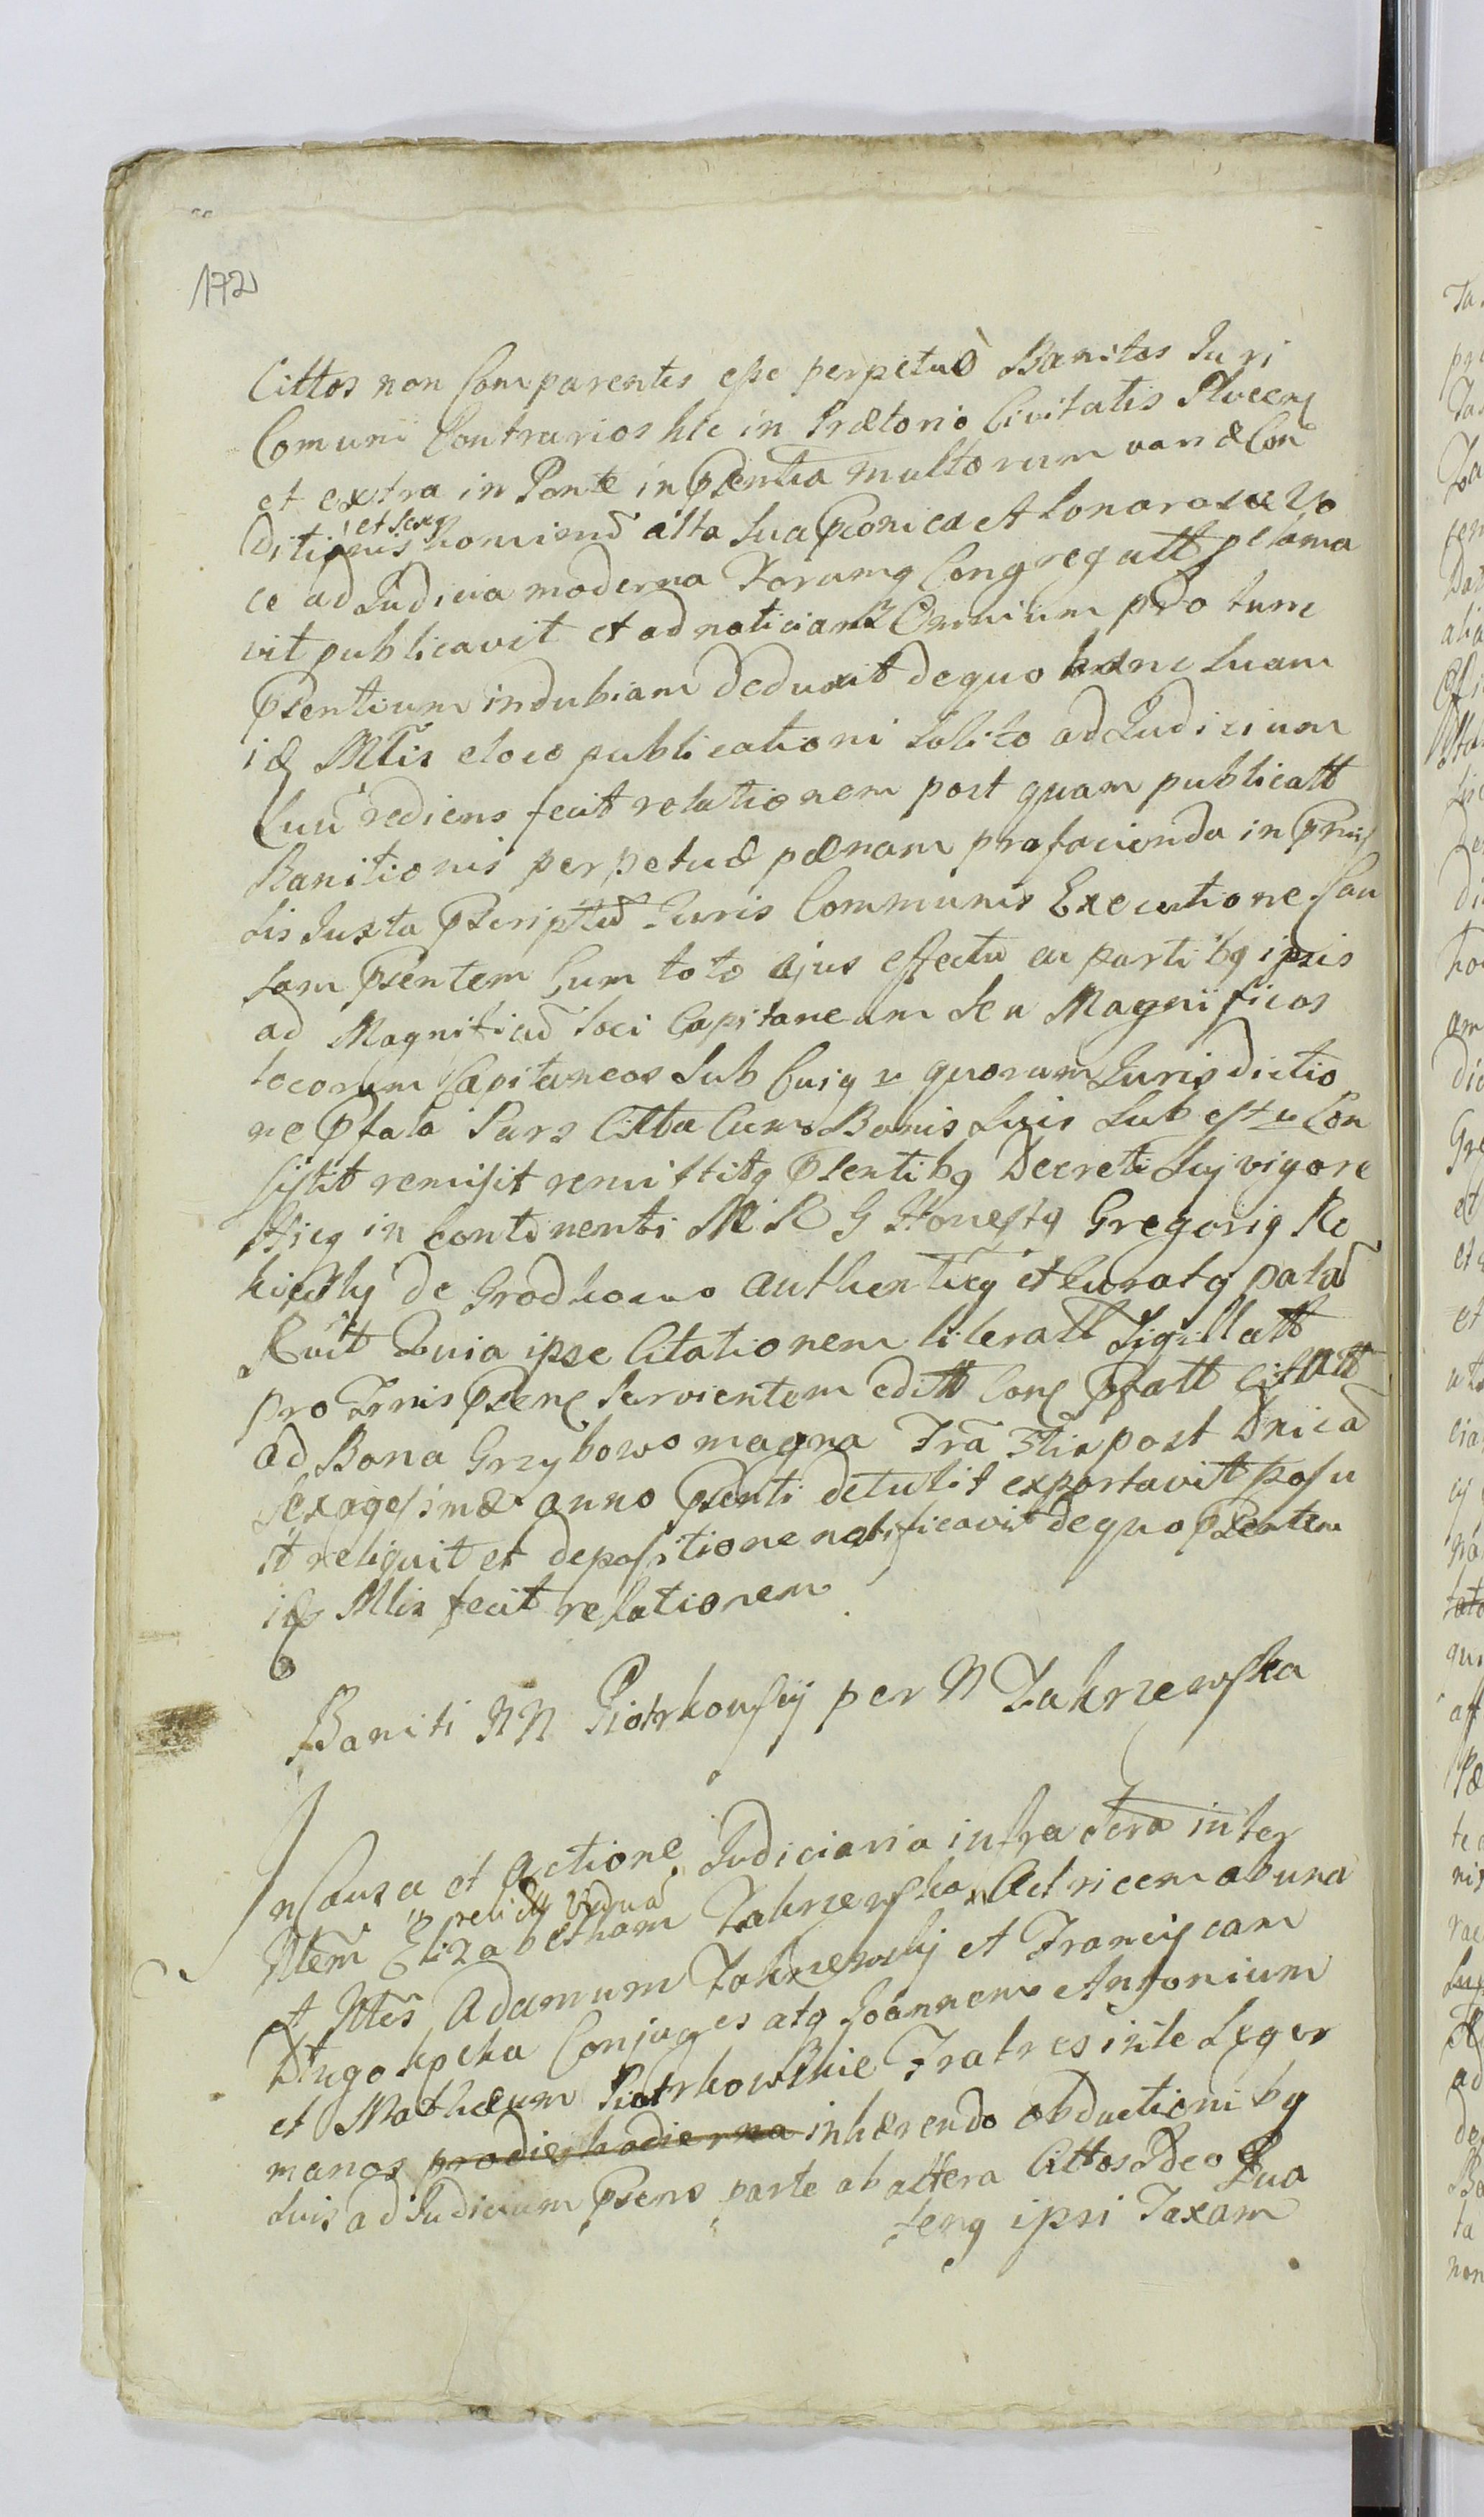 172
Cittos non Comparentes esse perpetuò Banitos Juri
Comuni Contrarios hic in Prætorio Civitatis Plocen
et extra in Ponte in Psentia multorum variæ Con
ditionis et sexq hominu alta sua Pconica et sonorosa Vo
ce ad Judicia moderna Forumq Congregatt pclama
vit publicavit et ad noticiam Omnium pro tunc
Psentium indubiam deduxit de quo hanc suam
id Mlis e loco publicationi solito ad Judicium
suu rediens fecit relationem post quam publicatt
Banitionis perpetuæ pænam pro facienda in Pmis
sis Juxta Pscriptu Juris Communis Executione Cau
sam Psentem Cum toto ejus effectu ac partibq ipsis
ad Magnificu loci Capitaneum seu Magnificos
locorum Capitaneos sub Cuiq v quorum Jurisdictio
ne Pfata Pars Citta Cum Bonis suis sub est v Con
sistit remisit remittitq Psentibq Decreti sui vigore
Hicq in Continenti M R G Honestq Gregoriq Ro
kicky de Grodkowo authenticq et Juratq pala
Rcuit Quia ipse Citationem literatt Sigillatt
pro Trnis Psenc servientem editt Conc Pfatt Citatt
ad Bona Grzybowo magna Fra 3tia post Dnica
Sexagesimæ anno Psenti detulit exportavit posu
it reliquit et depositione notificavit de quo Psentem
id Mlis fecit relationem
Baniti NN Piotrkowscy per N Zakrzewska
In Causa et Actione Judiciaria infra scra inter
relicta Vidua
Mtem Elizabetham Zakrzewska Actricem ab una
et Mtes Adamum Zakrzewsky et Franciscam
Długołęcka Conjuges atq Joannem Antonium
et Mathæum Piotrkowskie Fratres inter se ger
manos pro die hodierna inhærendo obductionibq
suis ad Judicium Psens parte ab altera Cittos Ideo Qua
tenq ipsi Taxam